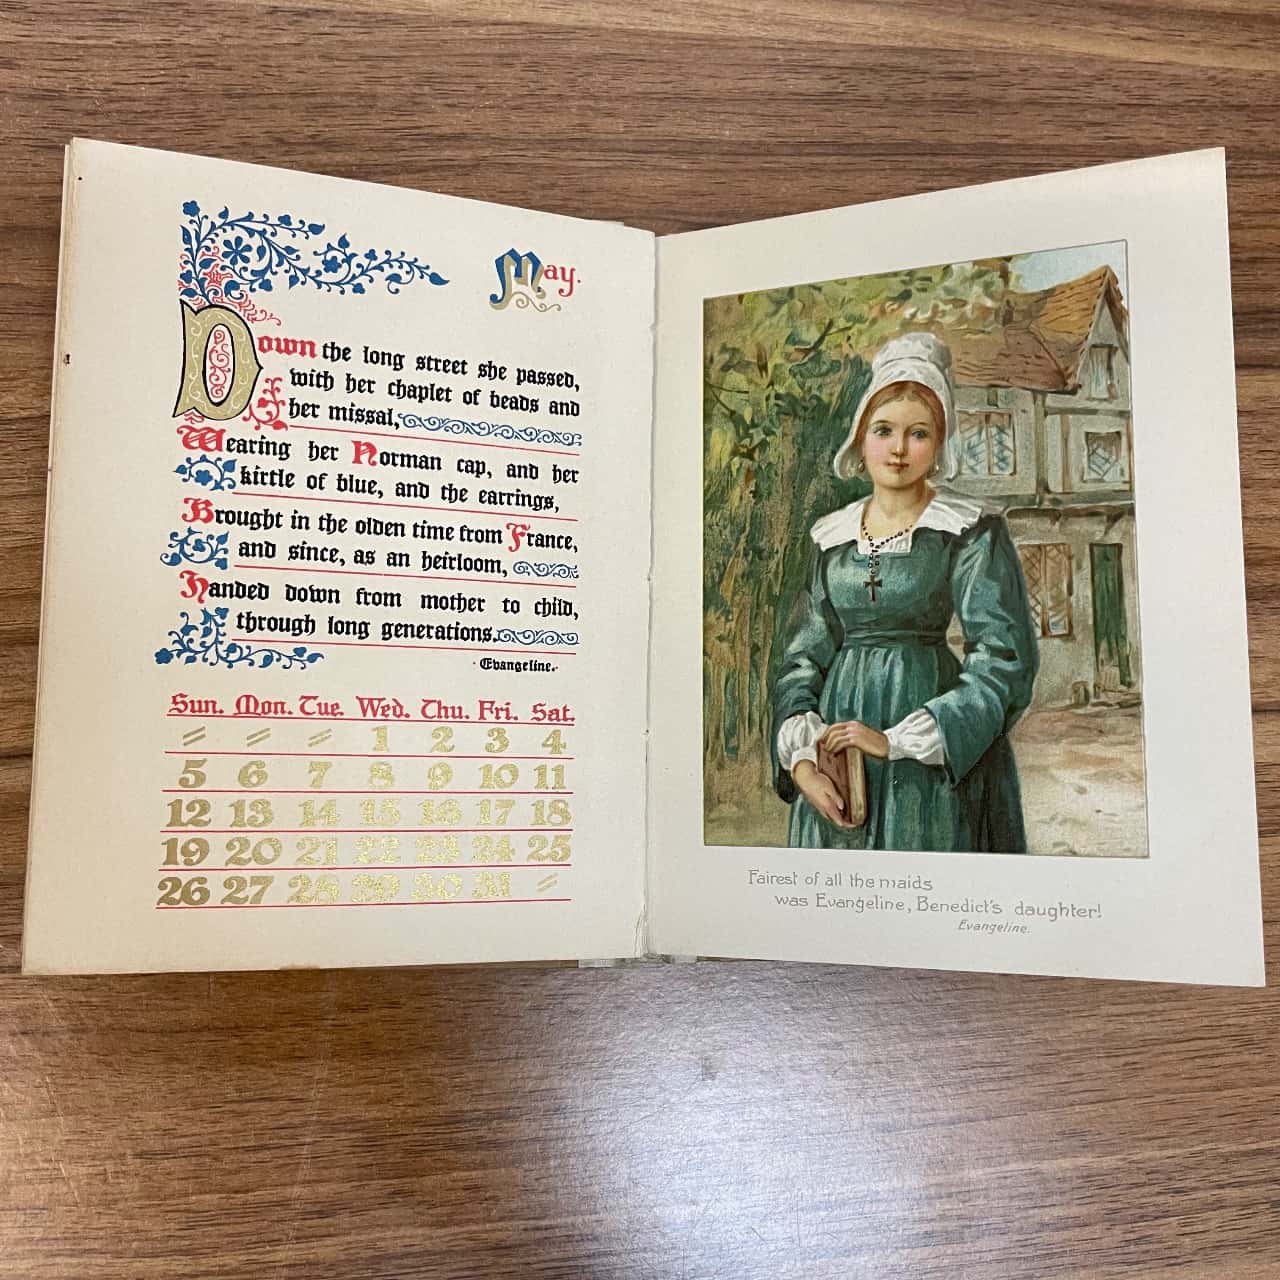 May.
Down the long street she passed,
with her chaplet of beads and
her missal,
Wearing her Norman cap, and her
kirtle of blue, and the earrings,
Brought in the olden time from France,
and since, as an heirloom,
Handed down from mother to child,
through long generations.
· Evangeline. ·
Sun. Mon. Tue. Wed. Thu. Fri. Sat.
1 2 3 4
5 6 7 8 9 10 11
12 13 14 15 16 17 18
19 20 21 22 23 24 25
26 27 28 29 30 31
Fairest of all the maids
was Evangeline, Benedict's daughter!
Evangeline.